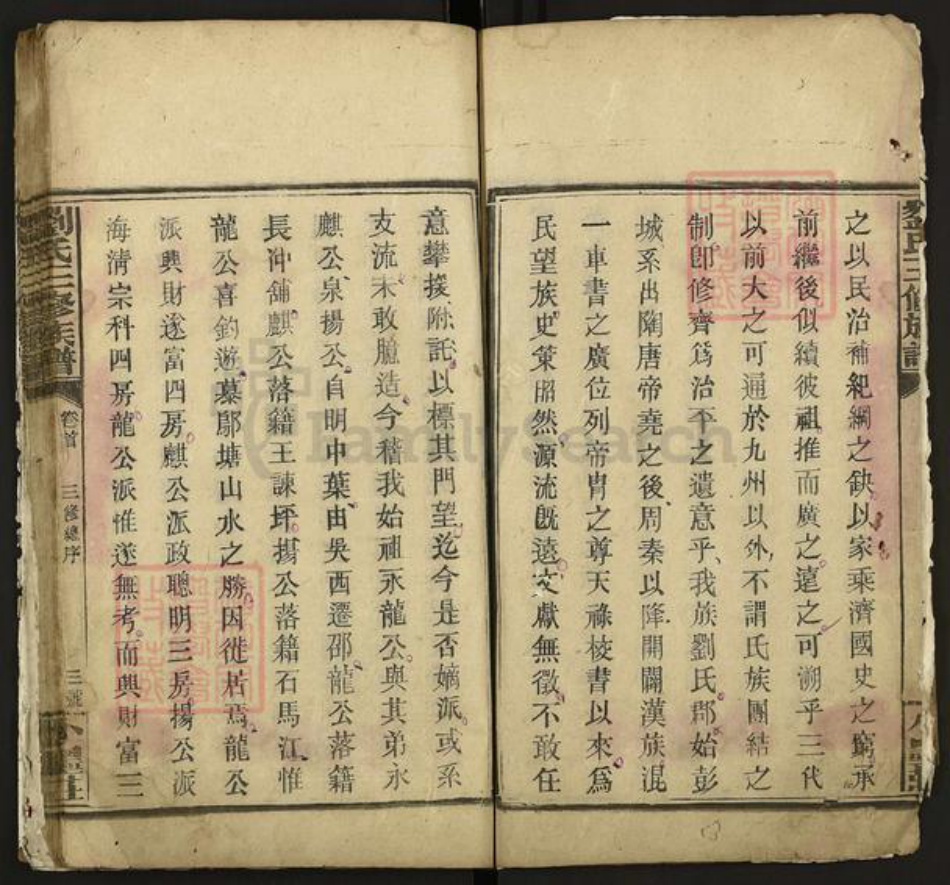 之以民治補紀綱之缺以家乘濟國史之窮承
前繼後似續彼祖推而廣之遠之可溯乎三代
以前大之可通於九州以外不謂氏族團結之
制卽修齊爲治平之遺意乎我族劉氏郡始彭
城系出陶唐帝堯之後周秦以降開闢漢族混
一車書之廣位列帝冑之尊天祿校書以來爲
民望族史策昭然源流旣遠文獻無徵不敢任
意攀援附託以標其門望迄今是否嫡派或系
支流未敢臆造今稽我始祖永龍公與其弟永
麒公泉揚公自明中葉由吳西遷邵龍公落籍
長沖舖麒公落籍王諫坪揚公落籍石馬江惟
龍公喜釣遊慕鄔塘山水之勝因徙居焉龍公
派興財遂富四房麒公派政聰明三房揚公派
海淸宗科四房龍公派惟遂無考而興財富三
劉氏三修族譜
卷首
三修總序
三號
FamilySearch